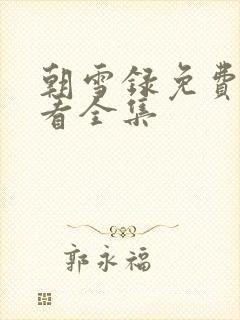 朝雪録免費
看全集
郭永福